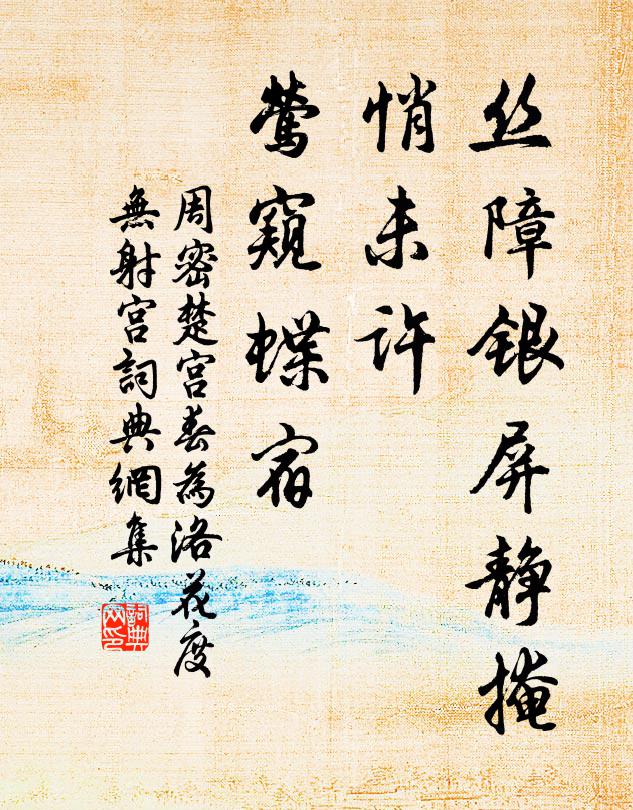 丝障银屏静掩
悄未许
莺窥蝶宿
周密楚宫春为洛花度
無射宫詞典網集
詞典網印